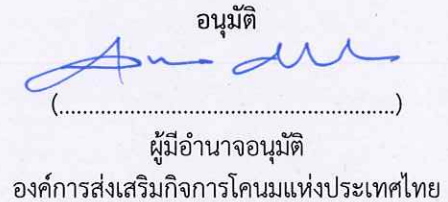 อนุมัติ
(....................................................)
ผู้มีอำนาจอนุมัติ
องค์การส่งเสริมกิจการโคนมแห่งประเทศไทย